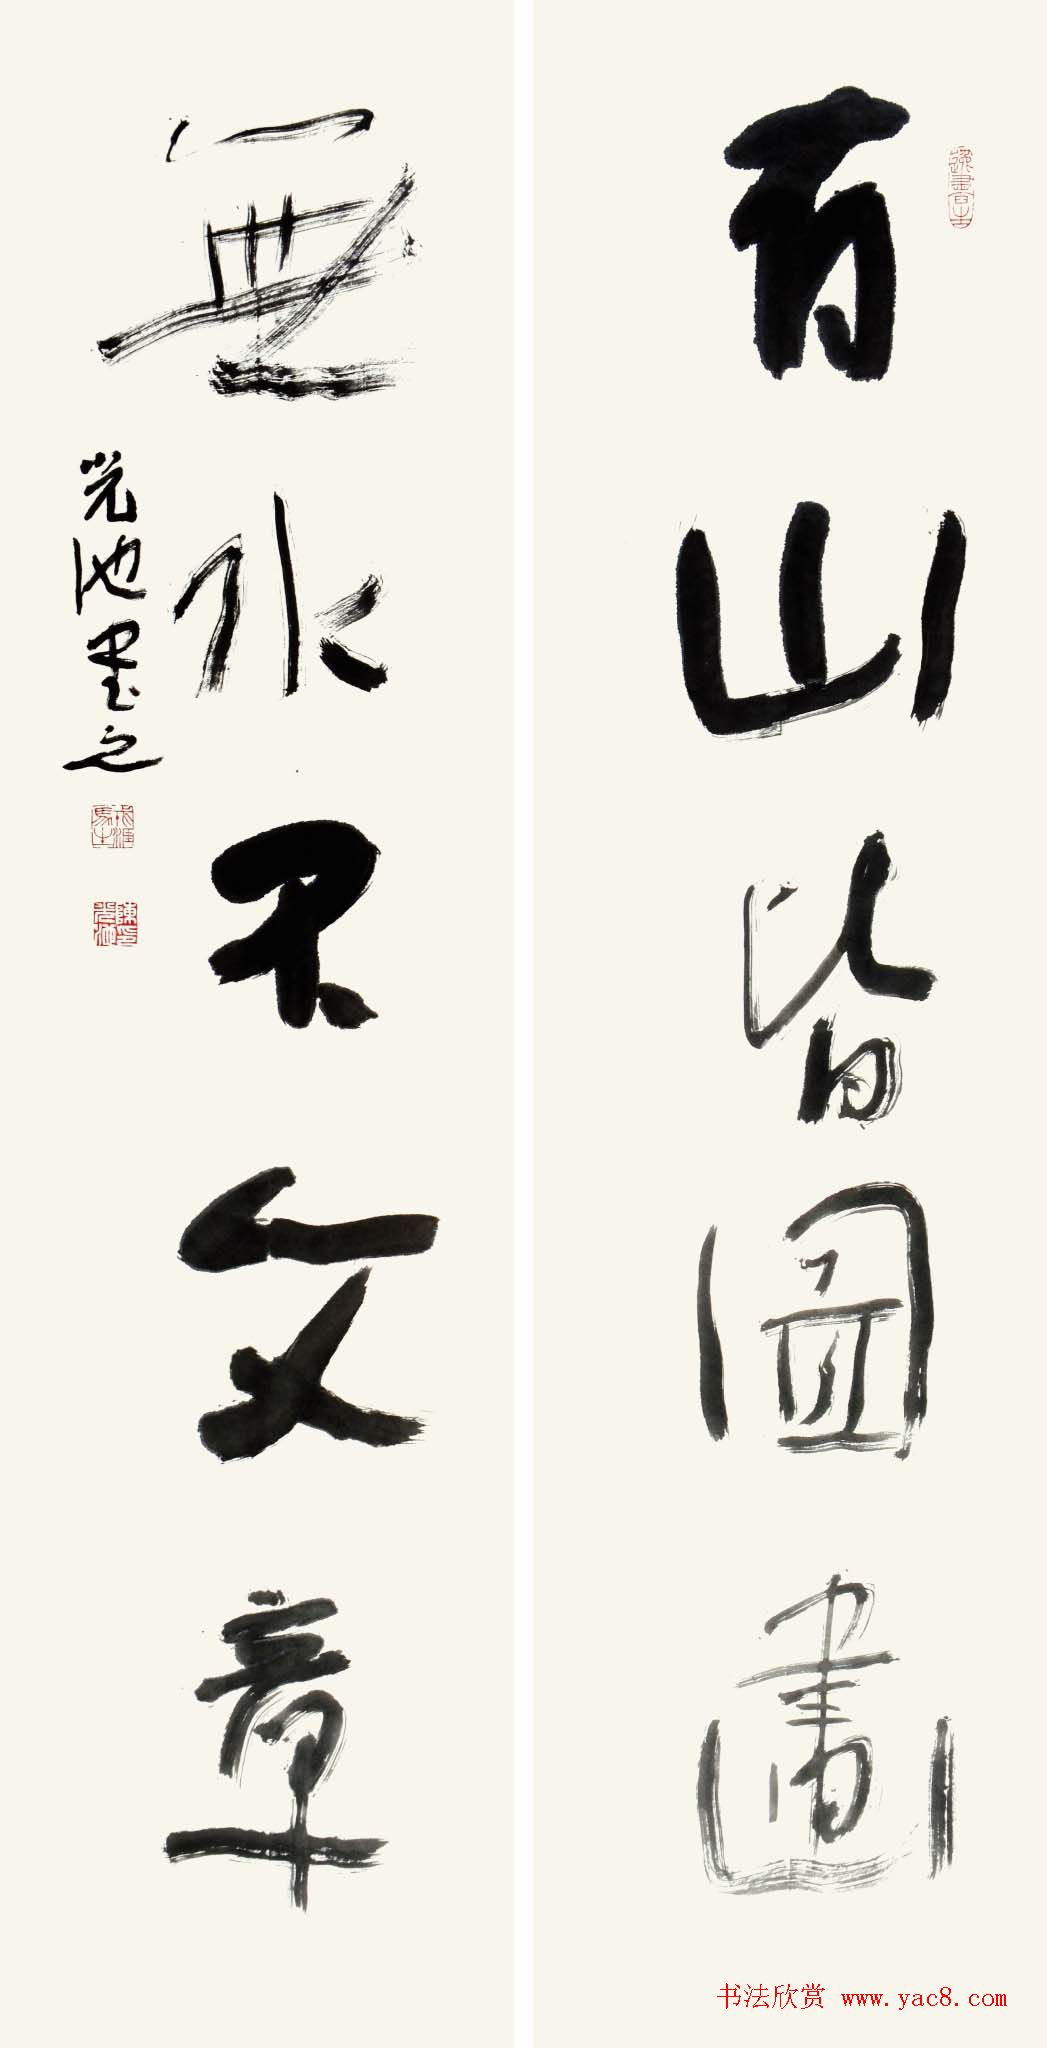 有山皆圖畫
無水不文章
光池墨之
书法欣赏 www.yac8.com